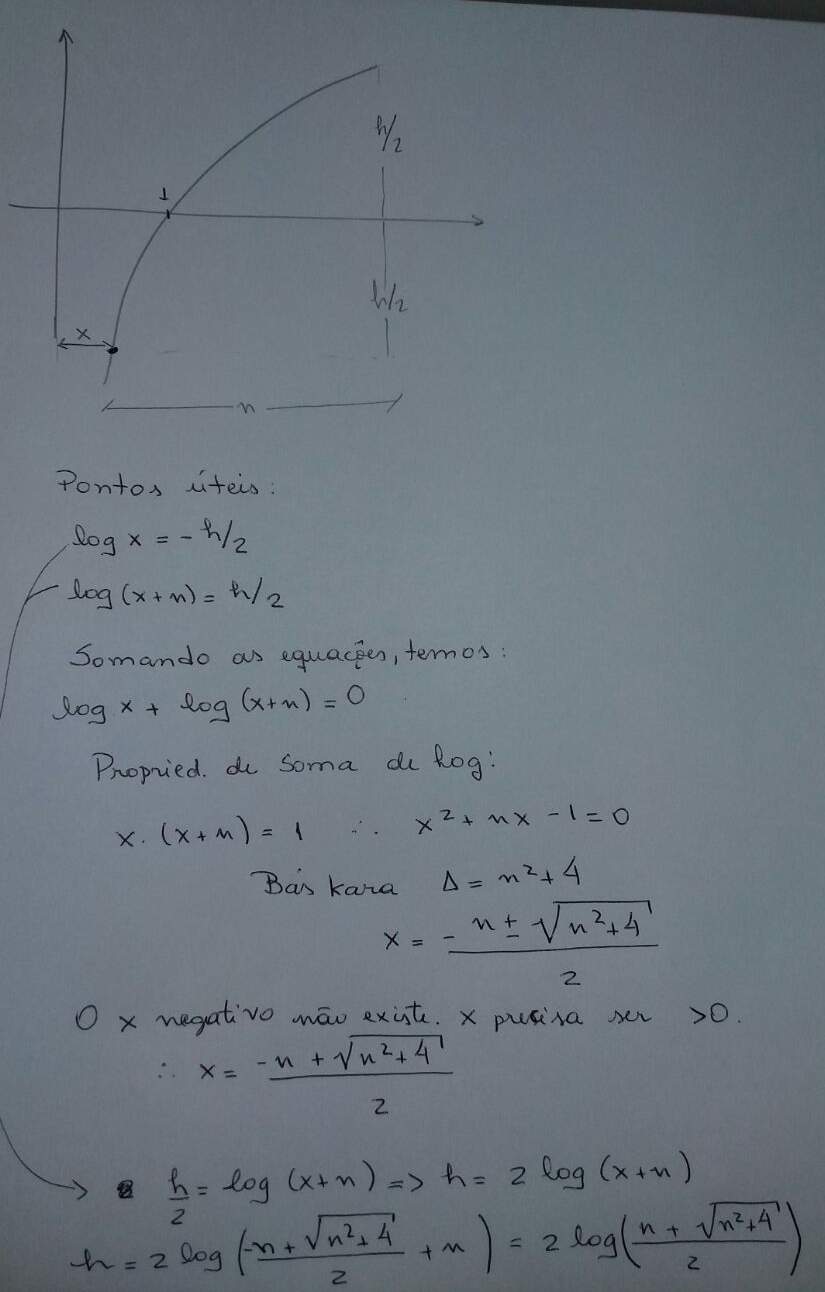 h/2
1
h/2
x
n
Pontos úteis:
log x = - h/2
log (x+n) = h/2
Somando as equações, temos:
log x + log (x+n) = 0
Propried. de soma de log:
x. (x+n) = 1 ∴ x²+ nx -1 = 0
Báskara Δ = n²+4
x = - n ± √n²+4 / 2
O x negativo não existe. x precisa ser >0.
∴ x = -n + √n²+4 / 2
h/2 = log (x+n) => h = 2 log (x+n)
h = 2 log (-n + √n²+4 / 2 + n) = 2 log (n + √n²+4 / 2)